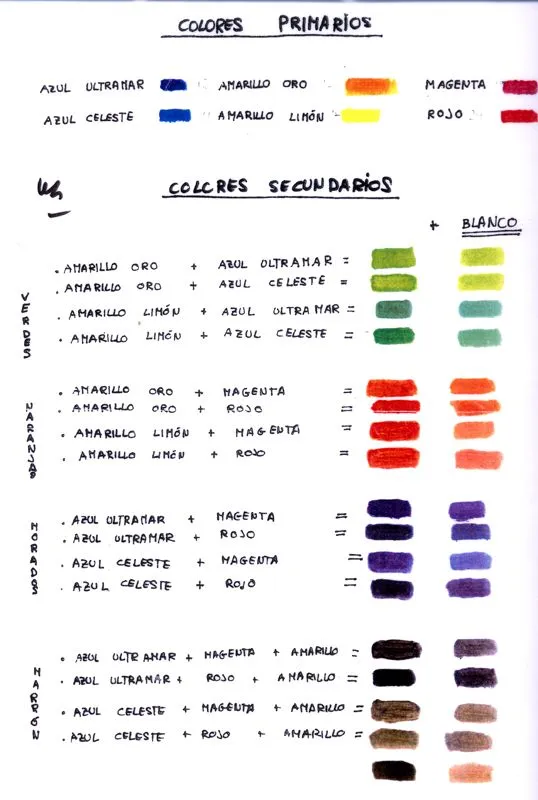 COLORES PRIMARIOS
AZUL ULTRAMAR AMARILLO ORO MAGENTA
AZUL CELESTE AMARILLO LIMÓN ROJO
COLORES SECUNDARIOS
+ BLANCO
VERDES
. AMARILLO ORO + AZUL ULTRAMAR =
. AMARILLO ORO + AZUL CELESTE =
. AMARILLO LIMÓN + AZUL ULTRAMAR =
. AMARILLO LIMÓN + AZUL CELESTE =
NARANJAS
. AMARILLO ORO + MAGENTA =
. AMARILLO ORO + ROJO =
. AMARILLO LIMÓN + MAGENTA =
. AMARILLO LIMÓN + ROJO =
MORADOS
. AZUL ULTRAMAR + MAGENTA =
. AZUL ULTRAMAR + ROJO =
. AZUL CELESTE + MAGENTA =
. AZUL CELESTE + ROJO =
MARRÓN
. AZUL ULTRAMAR + MAGENTA + AMARILLO =
. AZUL ULTRAMAR + ROJO + AMARILLO =
. AZUL CELESTE + MAGENTA + AMARILLO =
. AZUL CELESTE + ROJO + AMARILLO =